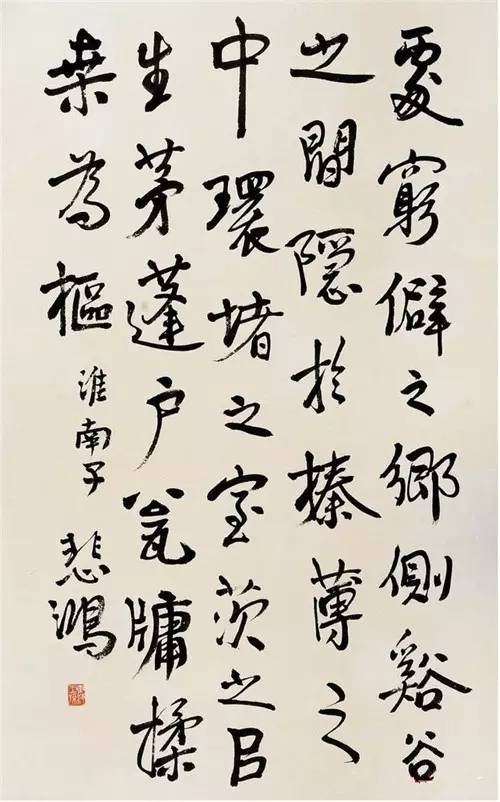 處窮僻之鄉側谿谷
之間隱於榛薄之
中環堵之室茨之㠯
生茅蓬户瓮牖揉
桑為樞
淮南子
悲鴻